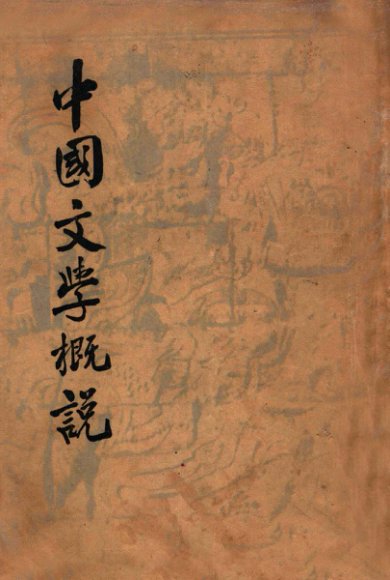 中國文學概説